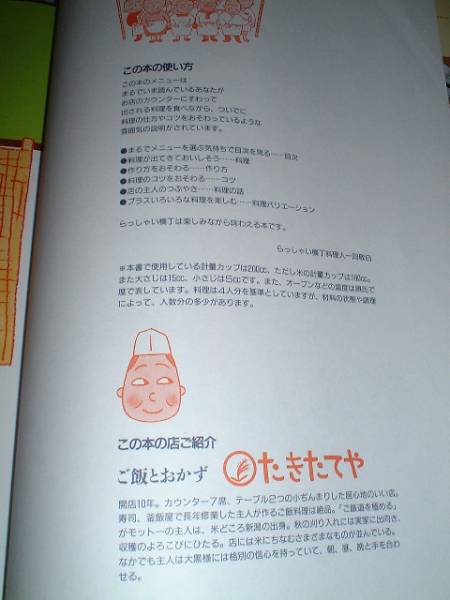 この本の使い方
この本のメニューは
まるでいま読んでいるあなたが
お店のカウンターにすわって
出される料理を食べながら、ついでに
料理の仕方やコツをおそわっているような
雰囲気の説明がされています。
●まるでメニューを選ぶ気持ちで目次を見る……目次
●料理が出てきておいしそう……料理
●作り方をおそわる……作り方
●料理のコツをおそわる……コツ
●店の主人のつぶやき……料理の話
●プラスいろいろな料理を楽しむ……料理バリエーション
らっしゃい横丁は楽しみながら味わえる本です。
らっしゃい横丁料理人一同敬白
※本書で使用している計量カップは200cc、ただし米の計量カップは180cc。
また大さじは15cc、小さじは5ccです。また、オーブンなどの温度は摂氏で
度で表しています。料理は4人分を基準としていますが、材料の状態や調理
によって、人数分の多少があります。
この本の店ご紹介
ご飯とおかず たきたてや
開店10年。カウンター7席、テーブル2つの小ぢんまりした居心地のいい店。
寿司、釜飯屋で長年修業した主人が作るご飯料理は絶品。「ご飯道を極める」
がモットーの主人は、米どころ新潟の出身。秋の刈り入れには実家に出向き、
収穫のよろこびにひたる。店には米にちなむさまざまなものが並んでいる。
なかでも主人は大黒様には格別の信心を持っていて、朝、昼、晩と手を合わ
せる。